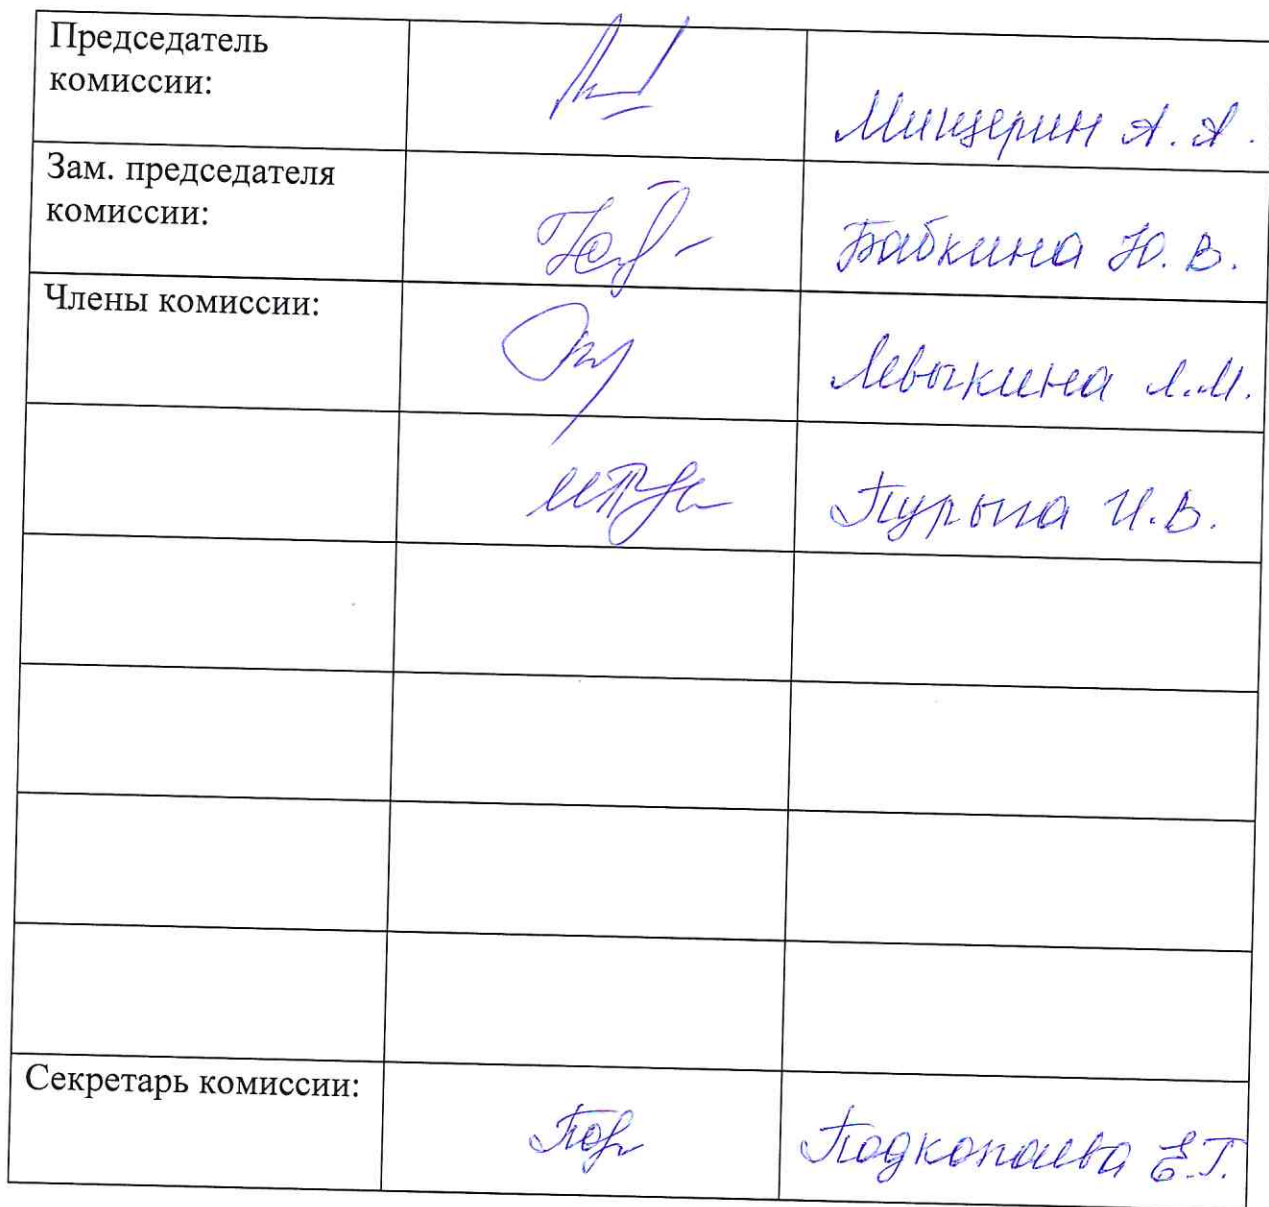 Председатель
комиссии:
Мищерин А. А.
Зам. председателя
комиссии:
Бабкина Ю. В.
Члены комиссии:
Левыкина Л.М.
И.В.
Секретарь комиссии:
Подкопаева Е.Г.